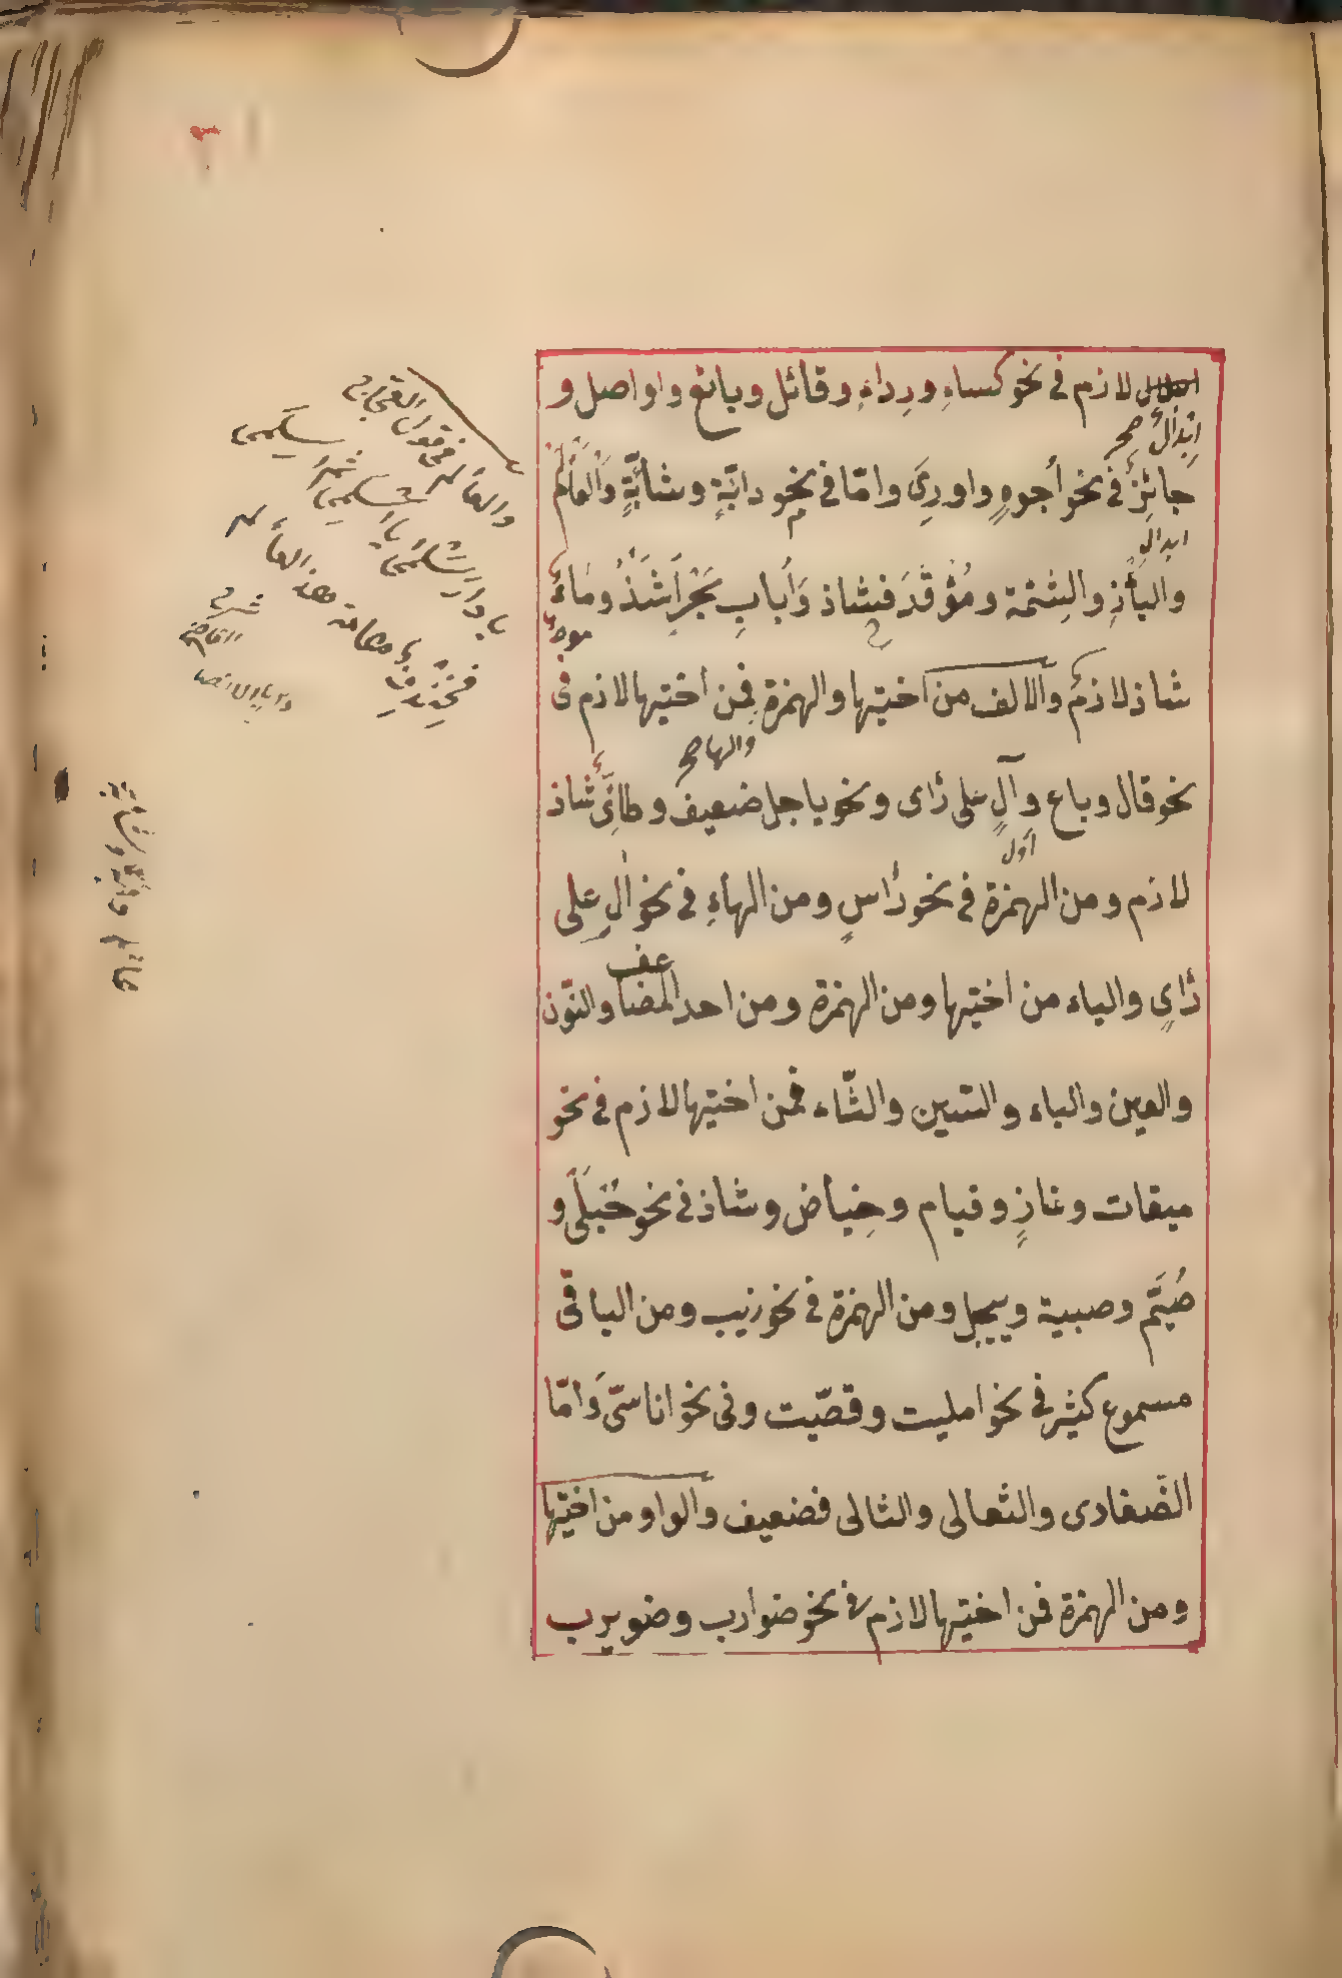 لازم فى نحو كساءِ ورِداءِ وقائل وبائع واواصل و
ابدالٌ صح
جائزٌ فى نحو أجوهٍ واورِىَ وامّا فى نحو دابّةٍ وشأبّةٍ والعألم
ابدال
والبأزِ والشئمة ومُؤْقدَ فشاذ وَأُباب بَحْرٍ اَشَذُّ ومَاءٌ
شاذ لازم والالف من اختيها والهمزة فمن اختيها لازم فى
والها صح
نحو قال وباع وآلٍ على رَاى ونحو ياجل ضعيف وطائِىٌّ شاذ
اول
لازم ومن الهمزة فى نحو رَاسٍ ومن الهاءِ فى نحو الٍ على
رَاىٍ والياء من اختيها ومن الهمزة ومن احد المضاعف والنّون
والعين والباء والسّين والثّاء فمن اختيها لازم فى نحو
ميقات وغازٍ وقيام وحِياض وشاذ فى نحو حُبلَى و
صُيَّم وصبية وييجل ومن الهمزة فى نحو ذيب ومن الباقى
مسموع كثير فى نحو امليت وقصّيت وفى نحو اناسىّ وَامّا
الضّفادى والثعالى والثالى فضعيف والواو من اختيها
ومن الهمزة فمن اختيها لازم فى نحو ضوارب وضويرب
والعألم فى قول العجاج
يا دار سلمى يا اسلمى ثم اسلمى
فخندف هامة هذا العألم
شرح